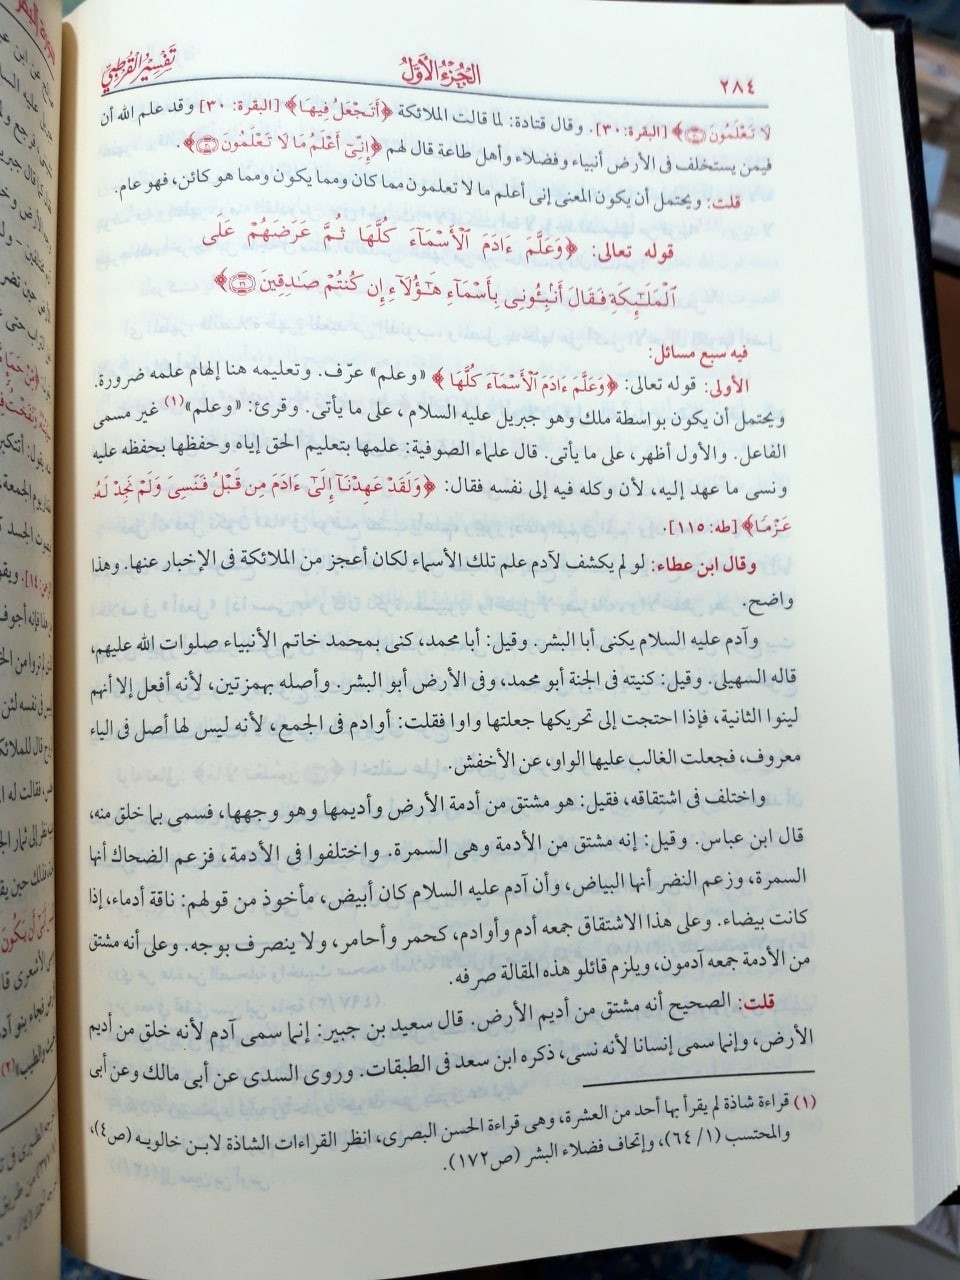 ٢٨٤
الجزء الأول
تفسير القرطبي
لَا تَعْلَمُونَ ﴿٣٠﴾﴾ [البقرة: ٣٠]. وقال قتادة: لما قالت الملائكة ﴿أَتَجْعَلُ فِيهَا﴾ [البقرة: ٣٠] وقد علم الله أن
فيمن يستخلف فى الأرض أنبياء وفضلاء وأهل طاعة قال لهم ﴿إِنِّىٓ أَعْلَمُ مَا لَا تَعْلَمُونَ ﴿٣٠﴾﴾.
قلت: ويحتمل أن يكون المعنى إنى أعلم ما لا تعلمون مما كان ومما يكون ومما هو كائن، فهو عام.
قوله تعالى: ﴿وَعَلَّمَ ءَادَمَ ٱلْأَسْمَآءَ كُلَّهَا ثُمَّ عَرَضَهُمْ عَلَى
ٱلْمَلَـٰٓئِكَةِ فَقَالَ أَنۢبِـُٔونِى بِأَسْمَآءِ هَـٰٓؤُلَآءِ إِن كُنتُمْ صَـٰدِقِينَ ﴿٣١﴾﴾
فيه سبع مسائل:
الأولى: قوله تعالى: ﴿وَعَلَّمَ ءَادَمَ ٱلْأَسْمَآءَ كُلَّهَا﴾ «وعلم» عرّف. وتعليمه هنا إلهام علمه ضرورة.
ويحتمل أن يكون بواسطة ملك وهو جبريل عليه السلام ، على ما يأتى. وقرئ: «وعلم»(١) غير مسمى
الفاعل. والأول أظهر، على ما يأتى. قال علماء الصوفية: علمها بتعليم الحق إياه وحفظها بحفظه عليه
ونسى ما عهد إليه، لأن وكله فيه إلى نفسه فقال: ﴿وَلَقَدْ عَهِدْنَآ إِلَىٰٓ ءَادَمَ مِن قَبْلُ فَنَسِىَ وَلَمْ نَجِدْ لَهُۥ
عَزْمًا﴾ [طه: ١١٥].
وقال ابن عطاء: لو لم يكشف لآدم علم تلك الأسماء لكان أعجز من الملائكة فى الإخبار عنها. وهذا
واضح.
وآدم عليه السلام يكنى أبا البشر. وقيل: أبا محمد، كنى بمحمد خاتم الأنبياء صلوات الله عليهم،
قاله السهيلى. وقيل: كنيته فى الجنة أبو محمد، وفى الأرض أبو البشر. وأصله بهمزتين، لأنه أفعل إلا أنهم
لينوا الثانية، فإذا احتجت إلى تحريكها جعلتها واوا فقلت: أوادم فى الجمع، لأنه ليس لها أصل فى الياء
معروف، فجعلت الغالب عليها الواو، عن الأخفش.
واختلف فى اشتقاقه، فقيل: هو مشتق من أدمة الأرض وأديمها وهو وجهها، فسمى بما خلق منه،
قال ابن عباس. وقيل: إنه مشتق من الأدمة وهى السمرة. واختلفوا فى الأدمة، فزعم الضحاك أنها
السمرة، وزعم النضر أنها البياض، وأن آدم عليه السلام كان أبيض، مأخوذ من قولهم: ناقة أدماء، إذا
كانت بيضاء. وعلى هذا الاشتقاق جمعه أدم وأوادم، كحمر وأحامر، ولا ينصرف بوجه. وعلى أنه مشتق
من الأدمة جمعه آدمون، ويلزم قائلو هذه المقالة صرفه.
قلت: الصحيح أنه مشتق من أديم الأرض. قال سعيد بن جبير: إنما سمى آدم لأنه خلق من أديم
الأرض، وإنما سمى إنسانا لأنه نسى، ذكره ابن سعد فى الطبقات. وروى السدى عن أبى مالك وعن أبى
(١) قراءة شاذة لم يقرأ بها أحد من العشرة، وهى قراءة الحسن البصرى، انظر القراءات الشاذة لابن خالويه (ص٤)،
والمحتسب (١/ ٦٤)، وإتحاف فضلاء البشر (ص١٧٢).